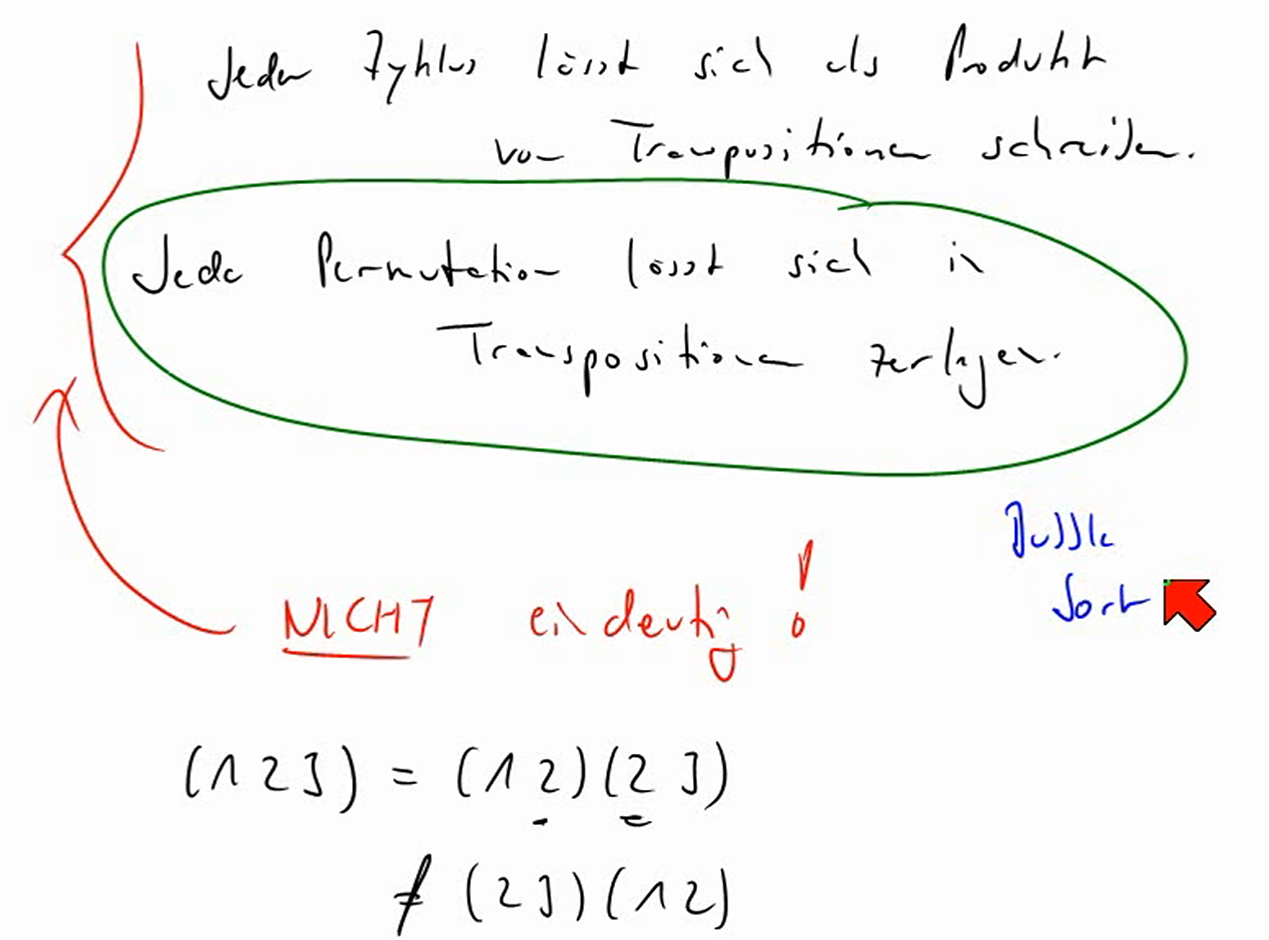 Jeder Zyklus lässt sich als Produkt
von Transpositionen schreiben.
Jede Permutation lässt sich in
Transpositionen zerlegen.
Bubble
Sort
NICHT eindeutig !
(1 2 3) = (1 2)(2 3)
≠ (2 3)(1 2)